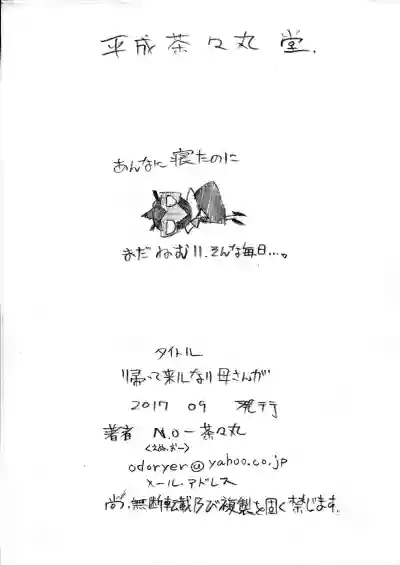 平成茶々丸堂.
あんなに寝たのに
まだねむいい.そんな毎日…。
タイトル
帰って来ルなり母さんが
2017 09 発行
著者 N.O-茶々丸
<えぬ.おー>
odoryer@yahoo.co.jp
メール.アドレス
尚、無断転載及び複製を固く禁じます.